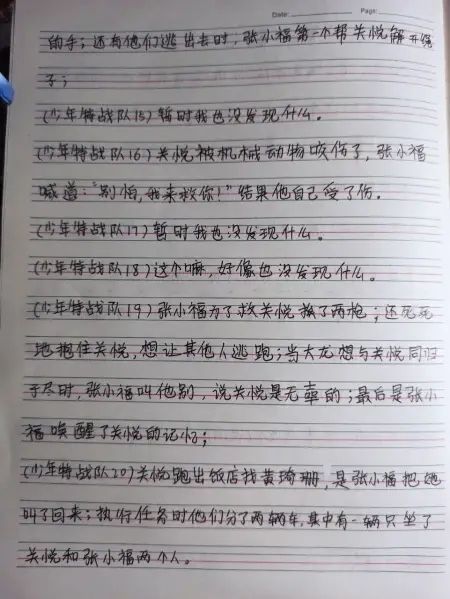 Date: Page:
的手；还有他们逃出去时，张小福第一个帮关悦解开绳
子；
(少年特战队15)暂时我也没发现什么。
(少年特战队16)关悦被机械动物咬伤了，张小福
喊道："别怕，我来救你！"结果他自己受了伤。
(少年特战队17)暂时我也没发现什么。
(少年特战队18)这个嘛，好像也没发现什么。
(少年特战队19)张小福为了救关悦挨了两枪；还死死
地抱住关悦，想让其他人逃跑；当大龙想与关悦同归
于尽时，张小福叫他别，说关悦是无辜的；最后是张小
福唤醒了关悦的记忆；
(少年特战队20)关悦跑出饭店找黄琦珊，是张小福把她
叫了回来；执行任务时他们分了两辆车，其中有一辆只坐了
关悦和张小福两个人。